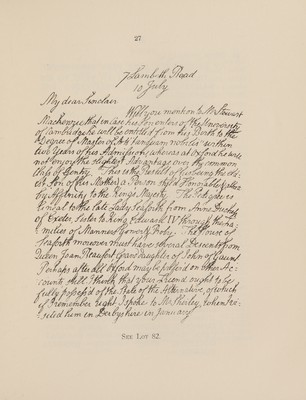 27
7 Lambeth Road
10 July
My dear Sinclair
Will you mention to Mr Stewart
Mackenzie that in case his Son enters of the University
of Cambridge he will be entitled from his Birth to the
Degree of Master of Arts tanquam nobilis within
two Years of his Admission; whereas at Oxford he will
not enjoy the slightest Advantage over the common
Class of Gentry. This is the Result of his being the
Son of his Mother, a Person styl'd Honorable, & also
by Affinity to the King's Majesty. The Pedigree is
lineal to the late Lady Seaforth from Anne Dutchess
of Exeter, Sister to King Edward IV through the
Families of Manners, Gower & Proby. The House of
Seaforth moreover must have several Descents from
Queen Joan Beaufort Grandaughter of John of Gaunt.
Perhaps after all Oxford may be preferred on other Ac-
counts still I think that your Friend ought to be
fully possess'd of the State of the Alternative, of which
if I remember right I spoke to Mr Shirley, when I vi-
sited him in Derbyshire in January
See Lot 82.